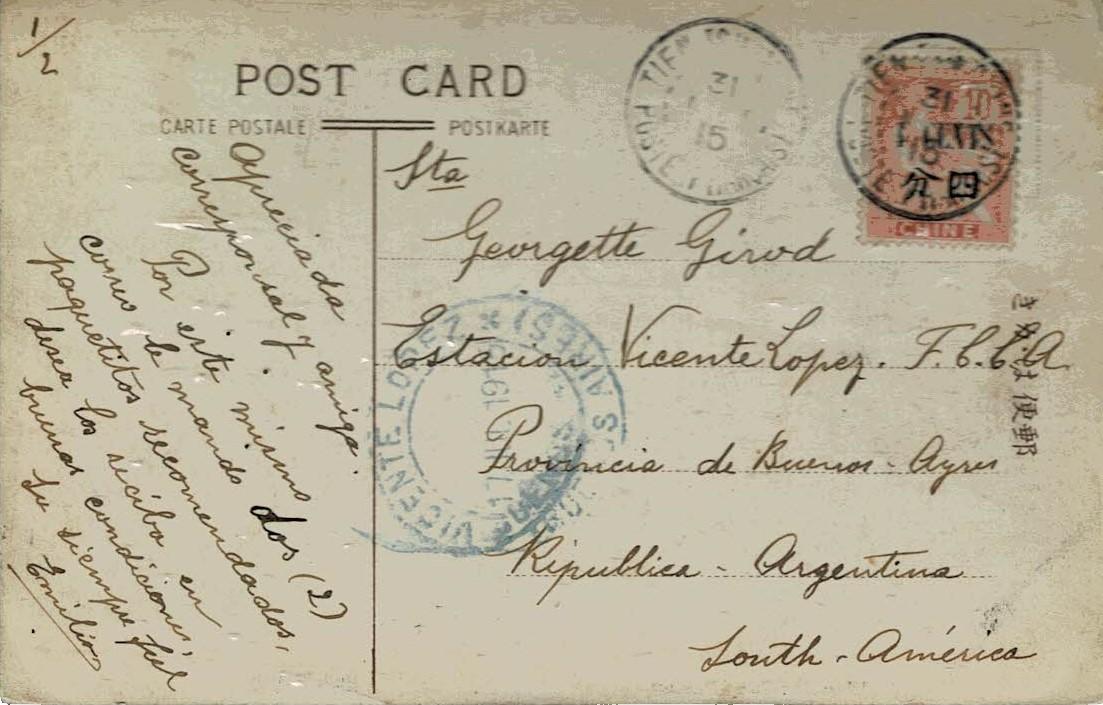 1/2
POST CARD
CARTE POSTALE
POSTKARTE
Apreciada
corresponsal y amiga.
Por este mismo
correo le mando dos (2)
paquetitos recomendados,
desea los reciba en
buenas condiciones,
Su siempre fiel
Emilio
Sta
Georgette Girod
Estacion Vicente Lopez. F.C.C.A.
Provincia de Buenos-Ayres
Républica - Argentina
South-América
TIEN
31
15
POSTE
TIEN
31
15
10
4 CENTS
分四
CHINE
VICENTE LOPEZ
BUENOS AIRES
きかは便郵